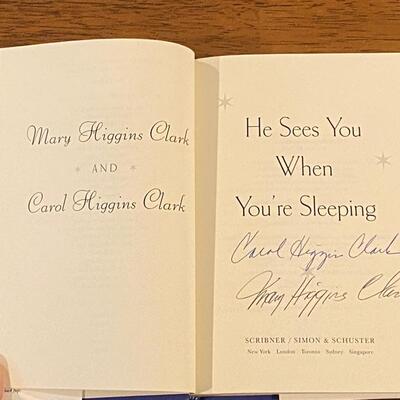 Mary Higgins Clark
AND
Carol Higgins Clark
He Sees You
When
You're Sleeping
Carol Higgins Clark
Mary Higgins Clark
SCRIBNER / SIMON & SCHUSTER
New York London Toronto Sydney Singapore